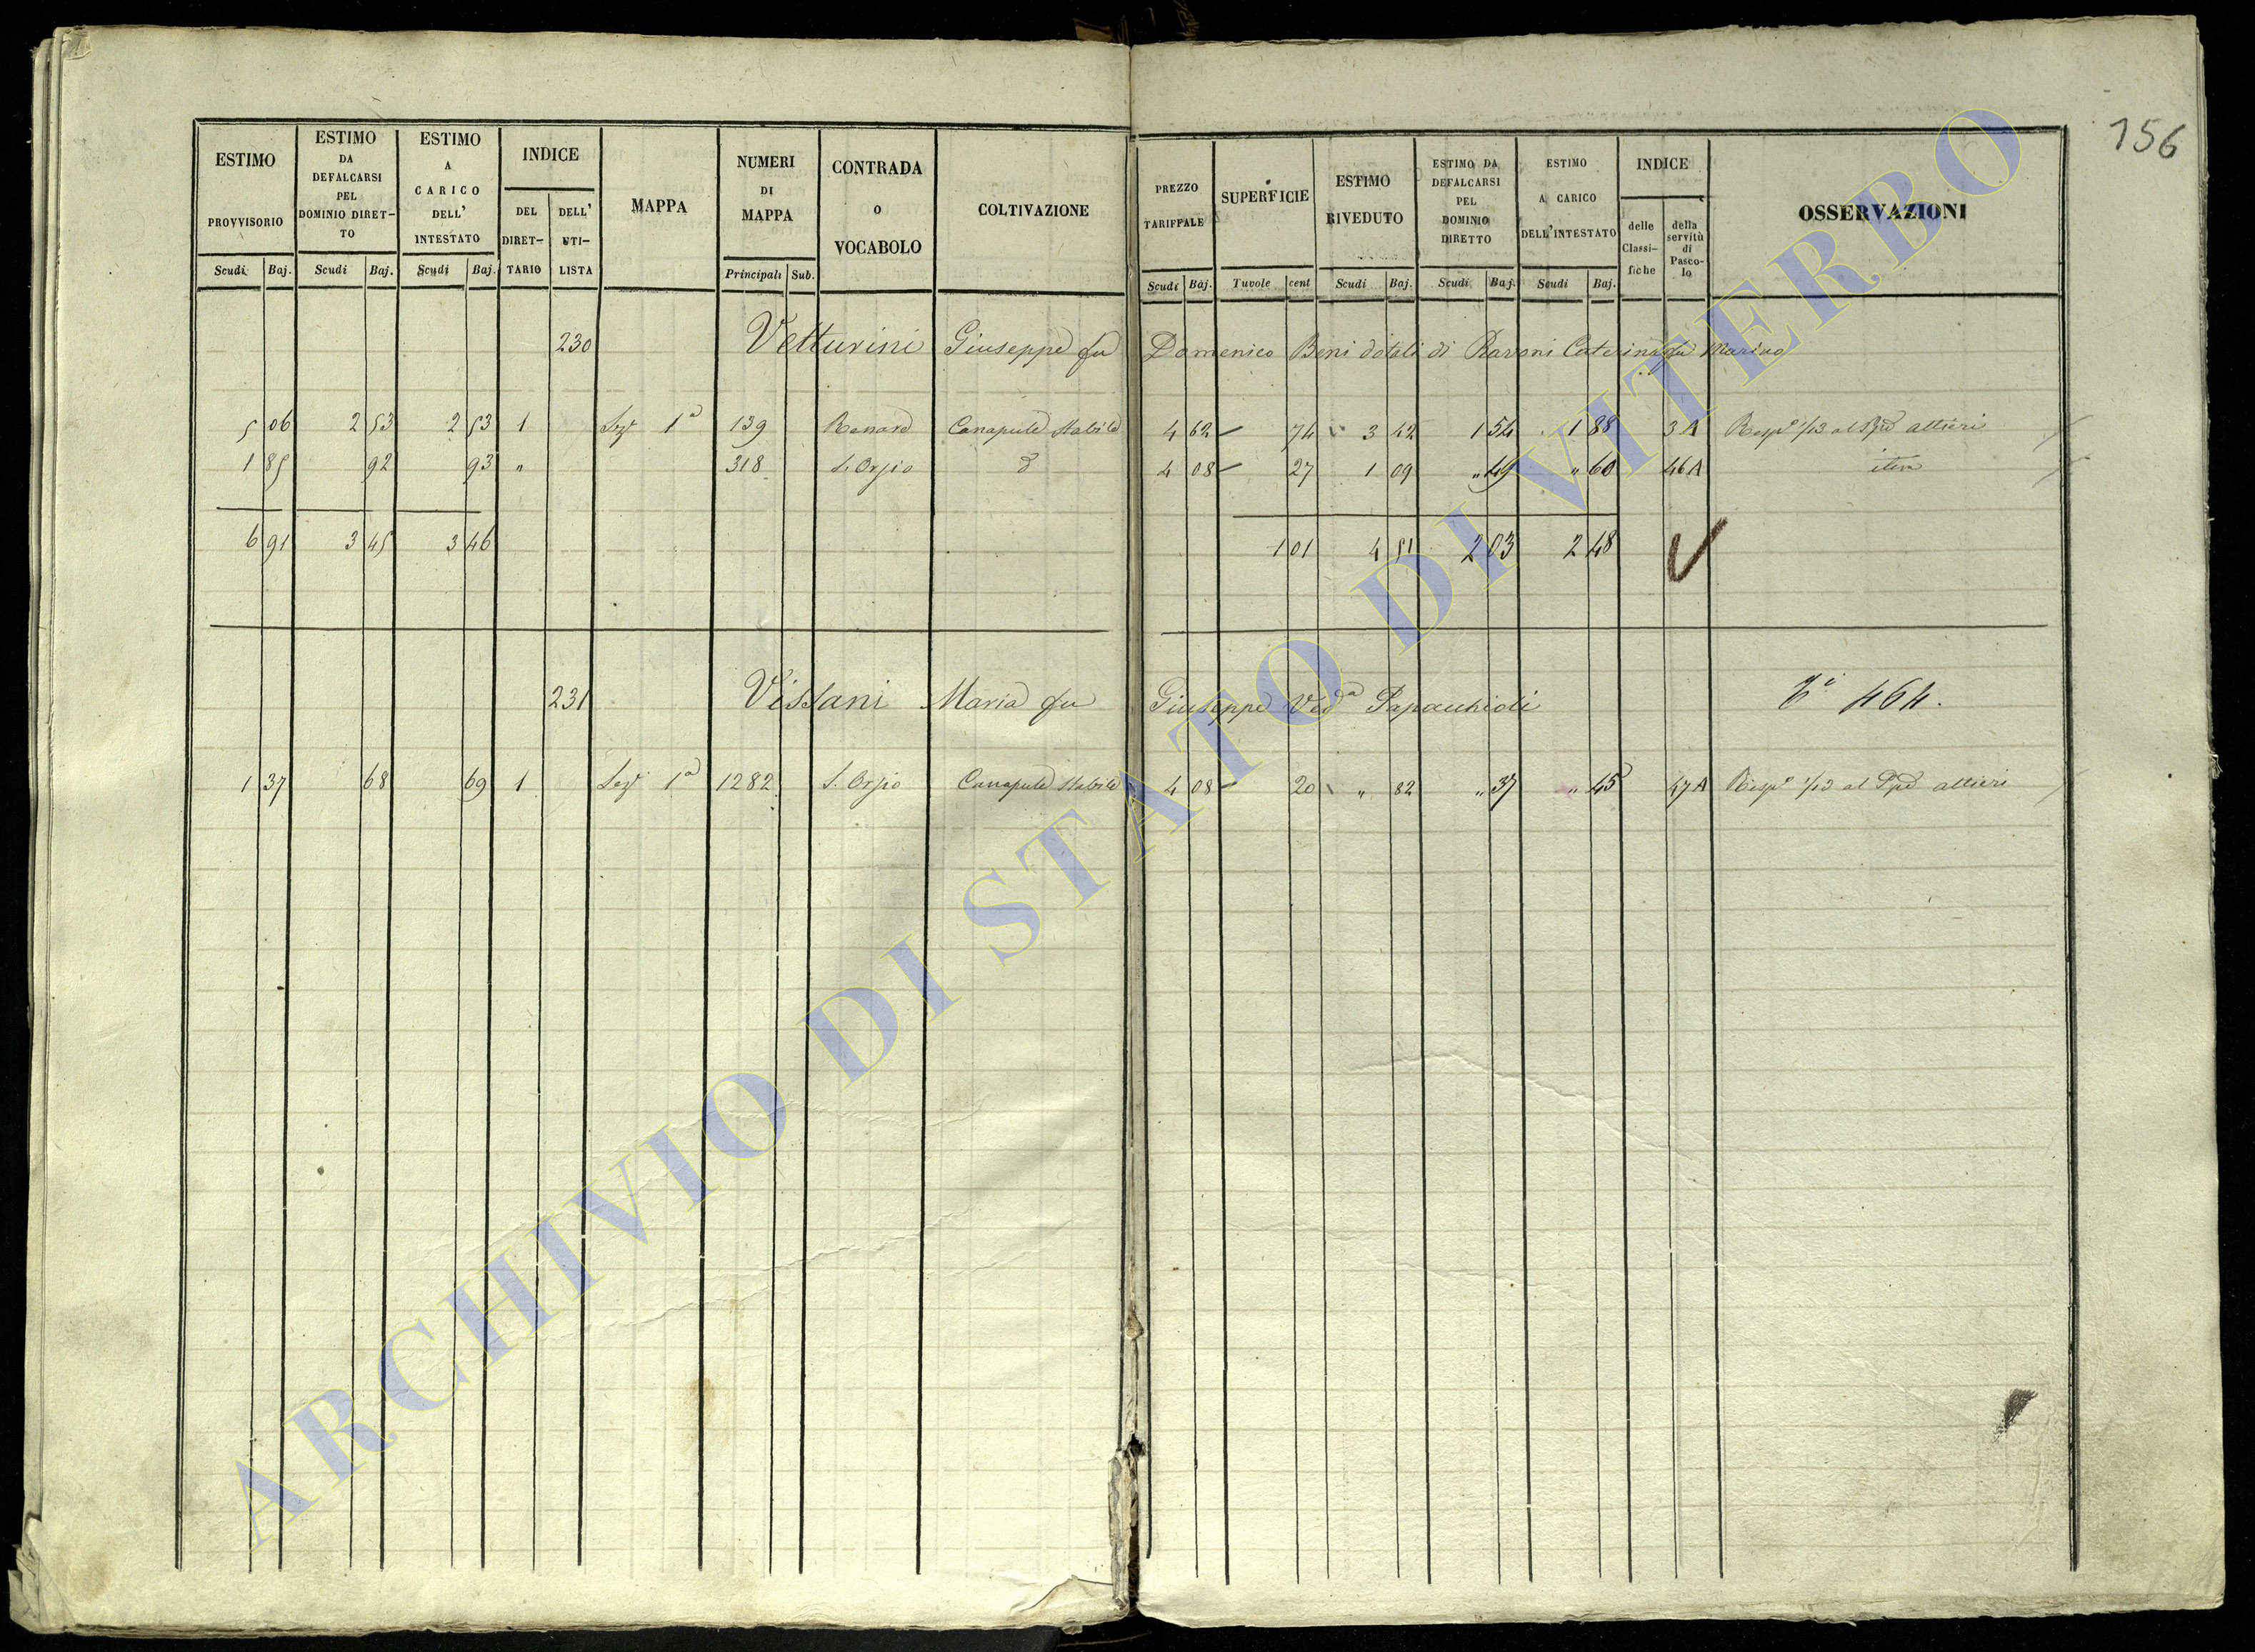 156
ESTIMO PROVVISORIO Scudi Baj.
ESTIMO DA DEFALCARSI PEL DOMINIO DIRETTO Scudi Baj.
ESTIMO A CARICO DELL' INTESTATO Scudi Baj.
INDICE DEL DIRETTARIO DELL' UTILISTA
MAPPA
NUMERI DI MAPPA Principali Sub.
CONTRADA O VOCABOLO
COLTIVAZIONE
PREZZO TARIFFALE Scudi Baj.
SUPERFICIE Tavole cent
ESTIMO RIVEDUTO Scudi Baj.
ESTIMO DA DEFALCARSI PEL DOMINIO DIRETTO Scudi Baj.
ESTIMO A CARICO DELL'INTESTATO Scudi Baj.
INDICE delle Classifiche della servitù di Pascolo
OSSERVAZIONI
230 Vetturini Giuseppe fu Domenico Beni dotali di Caterina fu Marino
5 06 2 53 2 53 1 Sez. 1a 139 Canapule Stabile 4 62 — 74 3 42 1 54 1 88 3 A Risp. 1/13 al altieri
1 85 92 93 " 318 S. Orsio d 4 08 — 27 1 09 " 49 " 60 46 A item
6 91 3 45 3 46 1 01 4 51 2 03 2 48
231 Vissani Maria fu Giuseppe Ved.a 464.
1 37 68 69 1 Sez. 1a 1282 S. Orsio Canapule Stabile 4 08 — 20 " 82 " 37 " 45 47 A Risp. 1/13 al altieri
ARCHIVIO DI STATO DI VITERBO